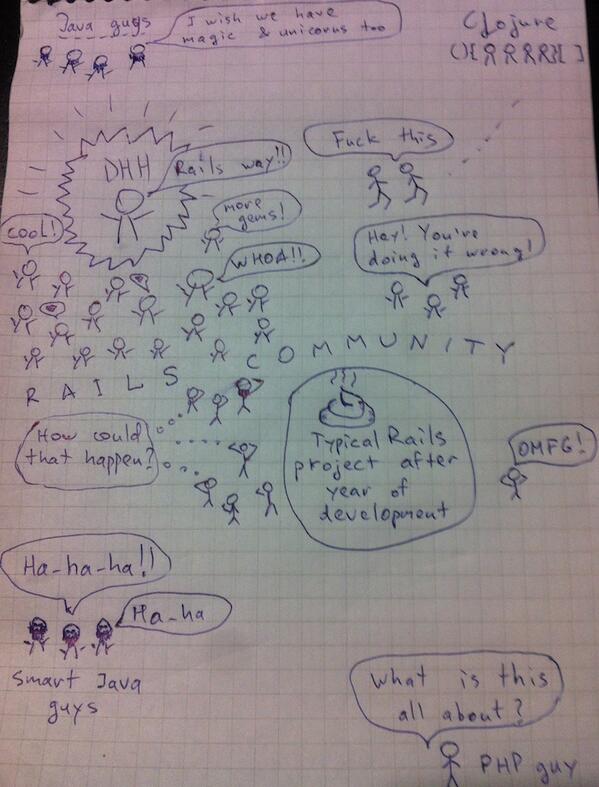 Java guys
I wish we have
magic & unicorns too
Clojure
DHH
Rails way!!
Fuck this
more
gems!
Cool!
WHOA!!
Hey! You're
doing it wrong!
RAILS COMMUNITY
How could
that happen?
Typical Rails
project after
year of
development
OMFG!
Ha-ha-ha!!
Ha-ha
Smart Java
guys
What is this
all about?
PHP guy